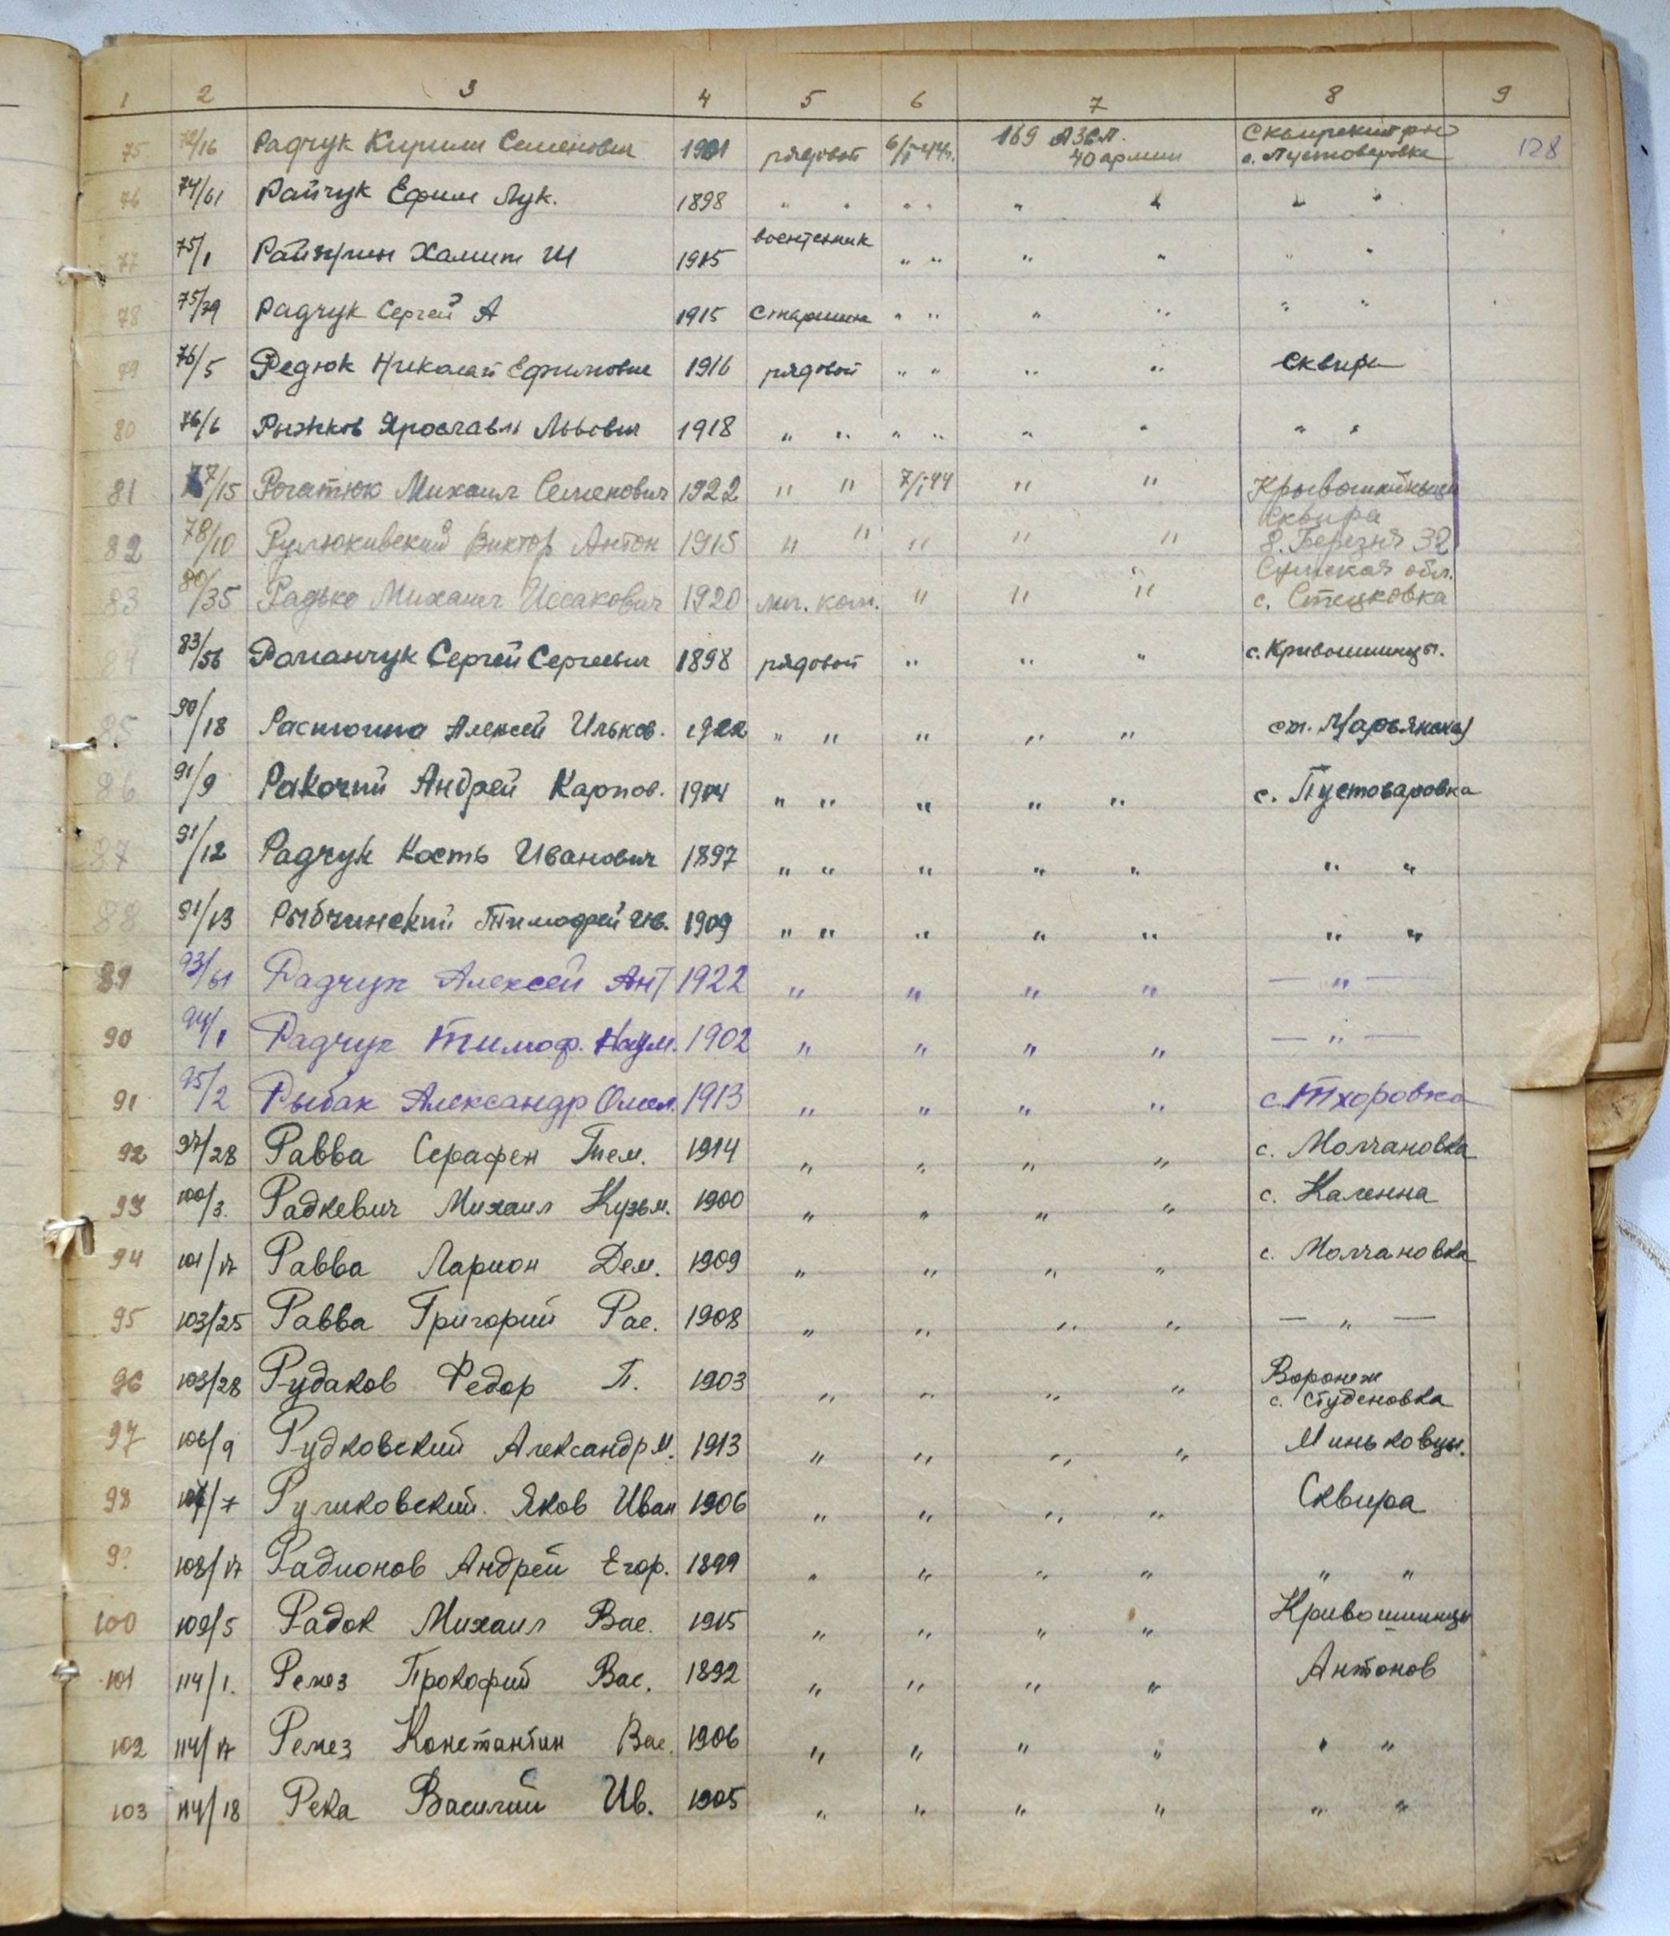 1 2 3 4 5 6 7 8 9
75 72/16 Радчук Кирилл Семенович 1901 рядовой 6/I-44г. 169 АЗСП. 40 армии Сквирский рн с. Пустоваровка 128
76 74/61 Райчук Ефим Лук. 1898 " " " " " " " "
77 75/1 Хамит Ш 1915 воентехник " " " " " "
78 75/79 Радчук Сергей А 1915 Старшина " " " " " "
79 76/5 Редюк Николай Ефимович 1916 рядовой " " " " Сквира
80 76/6 Рыжков Ярославль Львович 1918 " " " " " " " "
81 77/15 Рогатюк Михаил Семенович 1922 " " 7/I-44 " "
82 78/10 Виктор Антон 1915 " " " " " Сквира 8. Березня 32
83 80/35 Радько Михаил Исакович 1920 мл. ком. " " " Сумская обл. с. Стецковка
84 83/56 Романчук Сергей Сергеевич 1898 рядовой " " " с. Кривошиинцы.
85 90/18 Алексей Ильков. 1922 " " " " " ст.
86 91/9 Ракочий Андрей Карпов. 1904 " " " " " с. Пустоваровка
87 91/12 Радчук Кость Иванович 1897 " " " " " " "
88 91/13 Рыбчинский Тимофей Ив. 1909 " " " " " " "
89 93/61 Радчук Алексей Ант 1922 " " " " — " —
90 94/1 Радчук Тимоф. Наум. 1902 " " " " — " —
91 95/2 Рыбак Александр Омел. 1913 " " " " с. Тхоровка
92 97/28 Равва Серафен Тем. 1914 " " " " с. Молчановка
93 100/3. Радкевич Михаил Кузьм. 1900 " " " " с. Каленна
94 101/17 Равва Ларион Дем. 1909 " " " " с. Молчановка
95 103/25 Равва Григорий Рас. 1908 " " " " — " —
96 103/28 Рудаков Федор П. 1903 " " " " Воронеж с. Студеновка
97 106/9 Рудковский Александр М. 1913 " " " " Миньковцы.
98 107/7 Руликовский. Яков Иван 1906 " " " " Сквира
99 108/17 Радионов Андрей Егор. 1899 " " " " " "
100 109/5 Радок Михаил Вас. 1915 " " " " Кривошиинцы
101 114/1. Ремез Прокофий Вас. 1892 " " " " Антонов
102 114/17 Ремез Константин Вас. 1906 " " " " " "
103 114/18 Река Василий Ив. 1905 " " " " " "